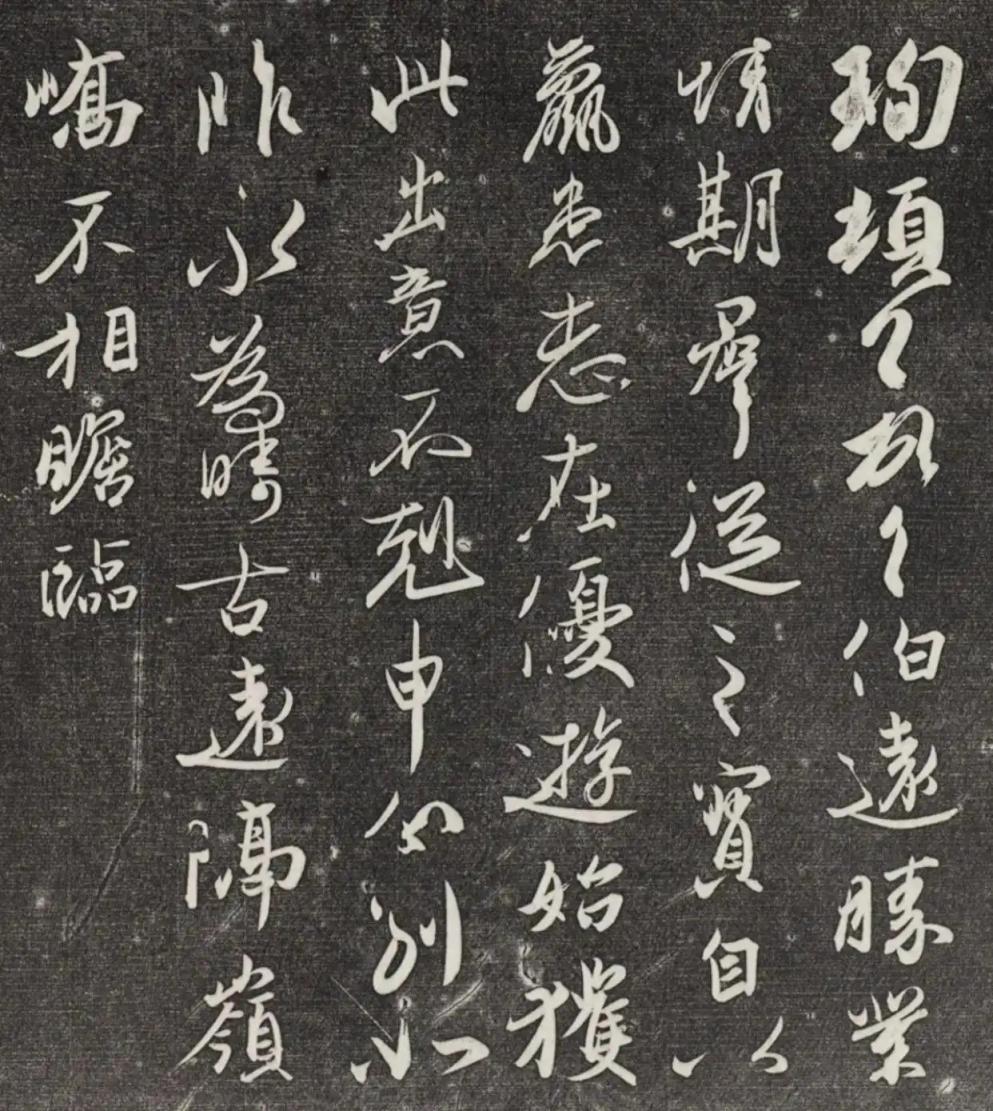 珣頓〻首〻伯遠勝業
情期羣從之寶自以
羸患志在優遊始獲
此出意不剋申分別如
昨永為疇古遠隔嶺
嶠不相瞻臨